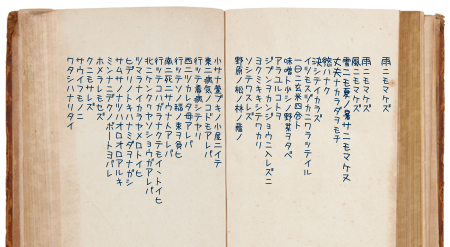 雨ニモマケズ
雨ニモマケズ
風ニモマケズ
雪ニモ夏ノ暑サニモマケヌ
丈夫ナカラダヲモチ
慾ハナク
決シテイカラズ
イツモシヅカニワラッテイル
一日ニ玄米四合ト
味噌ト少シノ野菜ヲタベ
アラユルコトヲ
ジブンヲカンジョウニ入レズニ
ヨクミキキシテワカリ
ソシテワスレズ
野原ノ松ノ林ノ蔭ノ
小サナ萱ブキノ小屋ニイテ
東ニ病気ノコドモアレバ
行ッテ看病シテヤリ
西ニツカレタ母アレバ
行ッテソノ稲ノ束ヲ負ヒ
南ニ死ニサウナ人アレバ
行ッテコハガラナクテモイヽトイヒ
北ニケンクヮヤソショウガアレバ
ツマラナイカラヤメロトイヒ
ヒデリノトキハナミダヲナガシ
サムサノナツハオロオロアルキ
ミンナニデクノボートヨバレ
ホメラレモセズ
クニモサレズ
サウイフモノニ
ワタシハナリタイ